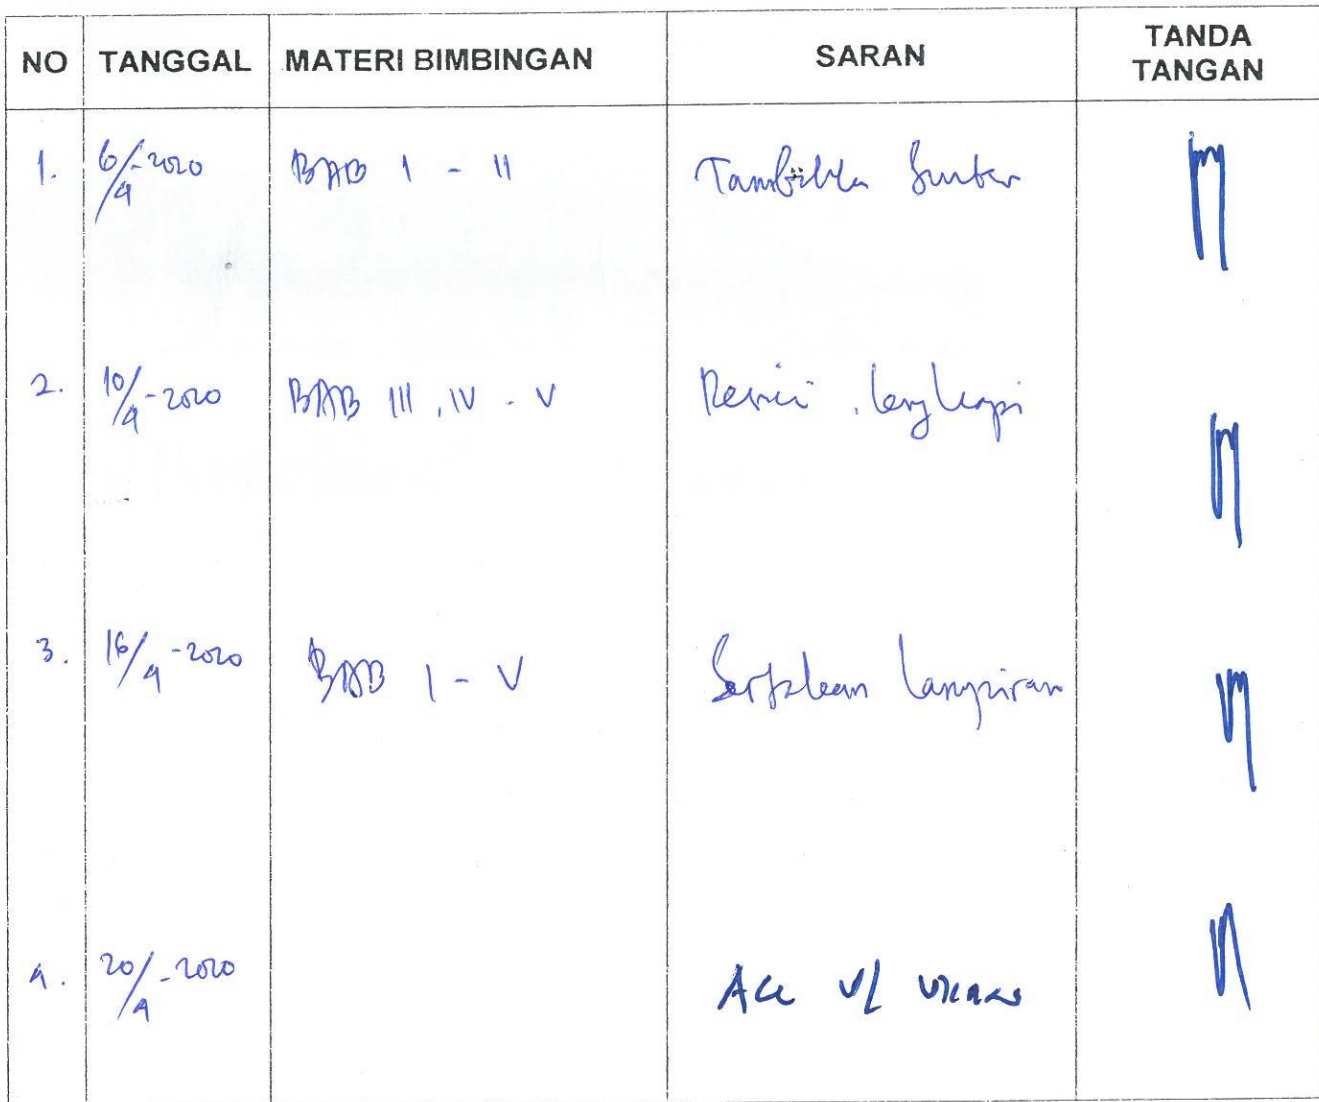 NO TANGGAL MATERI BIMBINGAN SARAN TANDA TANGAN
1. 6/4-2020 BAB I - II
2. 10/4-2020 BAB III, IV - V Revisi, lengkapi
3. 16/4-2020 BAB I - V Sertakan Lampiran
4. 20/4-2020 Acc u/